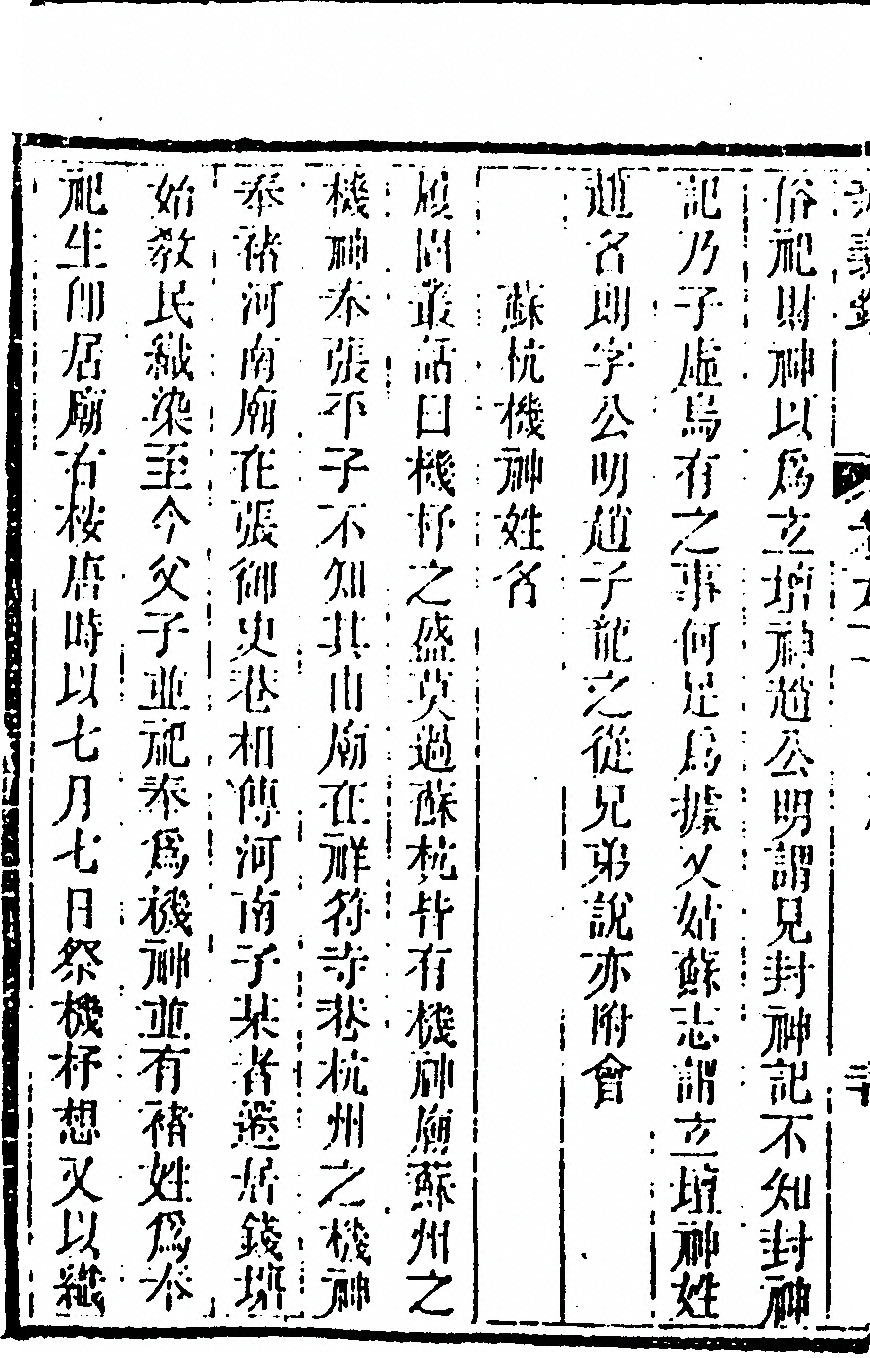 俗祀財神以爲立壇神趙公明謂見封神記不知封神
記乃子虛烏有之事何足爲據又姑蘇志謂立壇神姓
趙名朗字公明趙子龍之從兄弟說亦附會
蘇杭機神姓名
履園叢話曰機杼之盛莫過蘇杭皆有機神廟蘇州之
機神奉張平子不知其由廟在祥符寺巷杭州之機神
奉褚河南廟在張御史巷相傳河南子某者遷居錢塘
始教民織染至今父子並祀奉爲機神並有褚姓爲奉
祀生卽居廟右按唐時以七月七日祭機杼想又以織